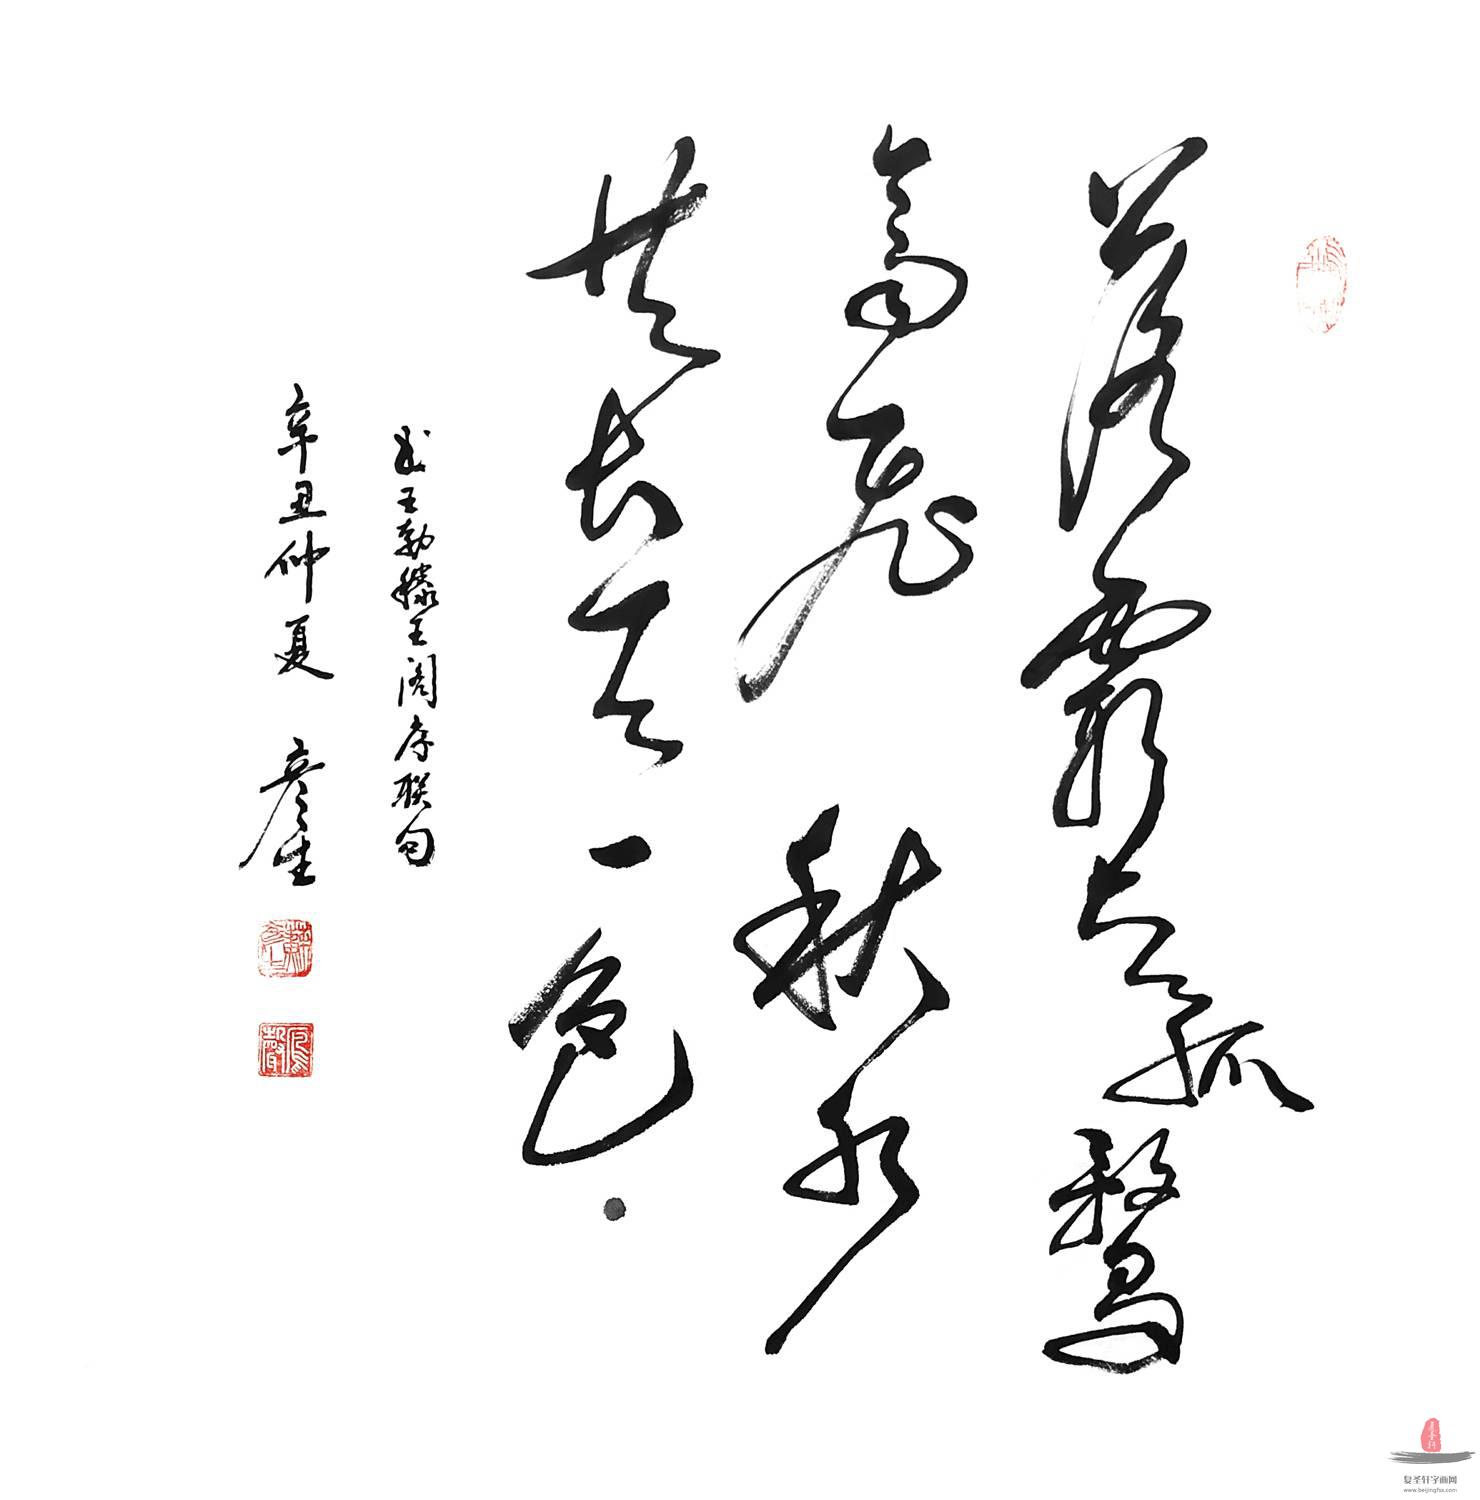 落霞与孤鹜
齐飞秋水
共长天一色
书王勃滕王阁序联句
辛丑仲夏 彦生
复圣轩字画网
www.beijingfsx.com